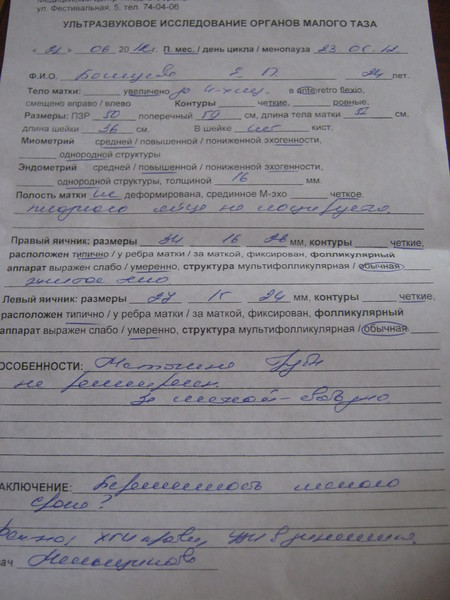 ул. Фестивальная, 5, тел. 74-04-06
УЛЬТРАЗВУКОВОЕ ИССЛЕДОВАНИЕ ОРГАНОВ МАЛОГО ТАЗА
« » 06 20 г. П. мес. / день цикла / менопауза 23.05.12
Ф.И.О. Е. П. 24 лет.
Тело матки: увеличено до 4-х нед. в ante/retro flexio,
смещено вправо / влево Контуры четкие, ровные,
Размеры: ПЗР 50 поперечный 50 см, длина тела матки 52
длина шейки 36 см. В шейке нет кист.
Миометрий средней / повышенной / пониженной эхогенности,
однородной структуры
Эндометрий средней / повышенной / пониженной эхогенности,
однородной структуры, толщиной 16 мм.
Полость матки не деформирована, срединное М-эхо четкое.
плодного яйцо не лоцируется.
Правый яичник: размеры 34 16 28 мм, контуры четкие,
расположен типично / у ребра матки / за маткой, фиксирован, фолликулярный
аппарат выражен слабо / умеренно, структура мультифолликулярная / обычная
желтое тело
Левый яичник: размеры 27 15 24 мм, контуры четкие,
расположен типично / у ребра матки / за маткой, фиксирован, фолликулярный
аппарат выражен слабо / умеренно, структура мультифолликулярная / обычная
ОСОБЕННОСТИ: Маточные трубы
не расширены.
За маткой -
АКЛЮЧЕНИЕ: Беременность малого
срока?
ХГЧ крови, УЗИ в динамике.
ач